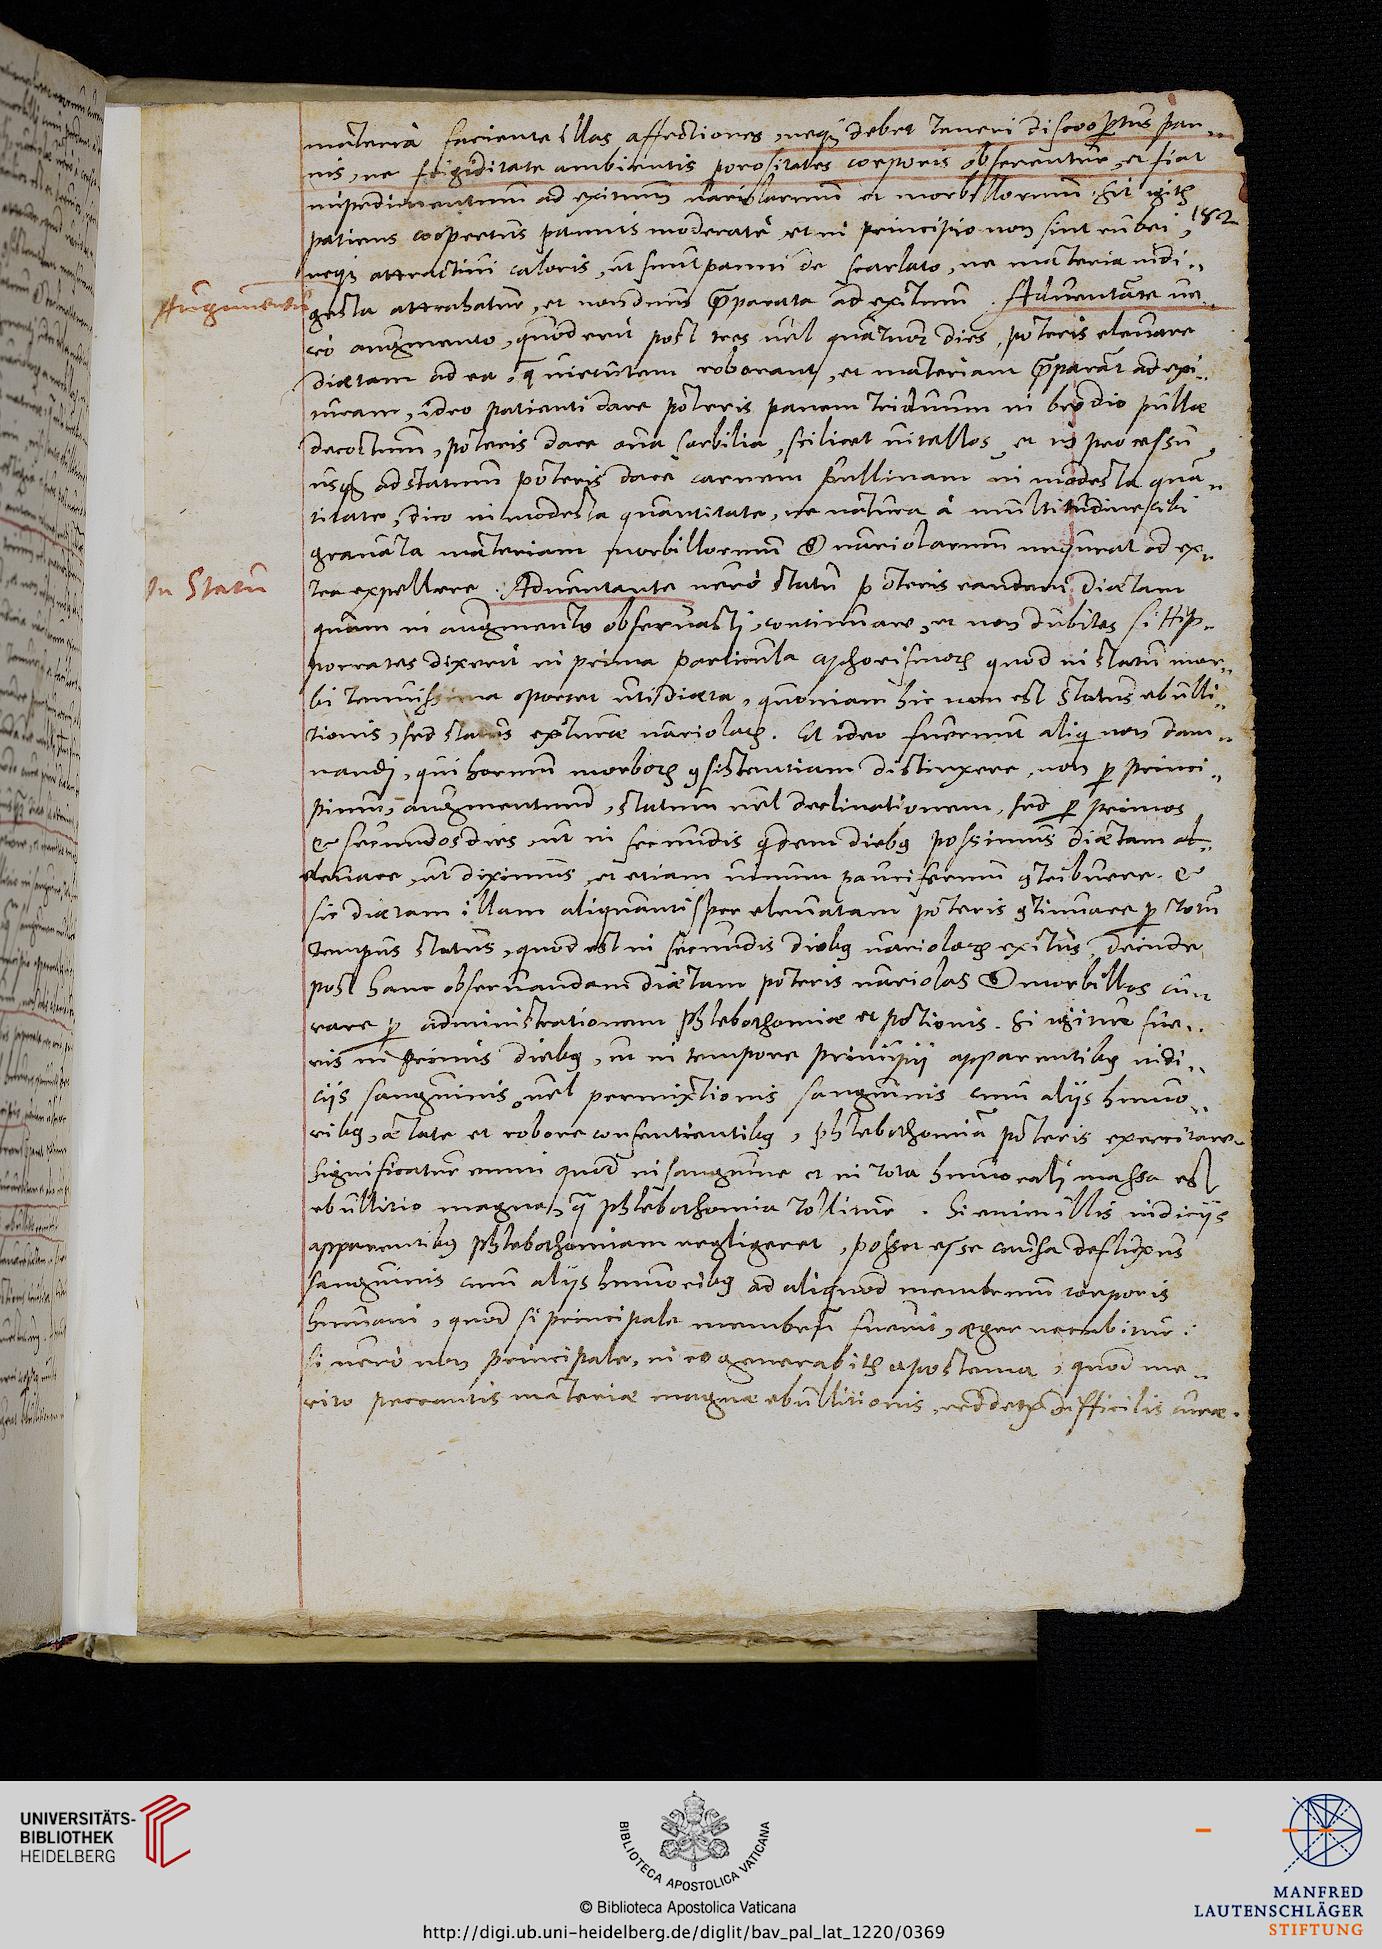 materia faciente illas affectiones, neq; debet teneri discoopertus pan-
nis, ne frigiditate ambientis porositates corporis obserentur, et fiat
impedimentum ad exitum variolarum et morbillorum. Sit igitr
patiens coopertus pannis moderatè, et in principio non sint rubei, 182
neq; attractivi caloris, ut sunt panni de scarlato, ne materia indi-
Augmentum
gesta attrahatur, et nondum præparata ad exitum. Adventante ve-
rò augmento, quod erit post tres vel quatuor dies, poteris elevare
diætam ad ea, quæ virtutem roborant, et materiam præparant ad exi-
turam, ideo patienti dare poteris panem triduum in brodio pullæ
decoctum, poteris dare ova sorbilia, scilicet vitellos, et in processu
usq; ad statum poteris dare carnem pullinam in modesta quan-
titate, dico in modesta quantitate, ne natura à multitudine cibi
gravata materiam morbillorum & variolarum nequeat ad ex-
In Statu
tra expellere. Adventante verò statu poteris eandem diætam
quam in augmento observasti, continuare, et non dubites si Hip-
pocrates dixerit in prima particula aphorismorum quod in statu mor-
bi tenuissima oportet uti diæta, quoniam hic non est status ebulli-
tionis, sed status exituræ variolarum. Et ideo fuerunt aliqui non dam-
nandi, qui horum morborum consistentiam distinxere, non per princi-
pium, augmentum, statum vel declinationem, sed per primos
& secundos dies, ut in secundis quidem diebus possimus diætam el-
elevare, ut diximus, et etiam vinum pauciferum contribuere. &
sic diætam illam aliquantisper elevatam poteris continuare per totum
tempus status, quod est in secundis diebus variolarum exitus, deinde
post hanc observandam diætam poteris variolas & morbillos cu-
rare per administrationem phlebothomiæ et potionis. Si igitur fue-
ris in primis diebus, ut in tempore principii apparentibus indi-
ciis sanguinis, vel permixtionis sanguinis cum aliis humo-
ribus, ætate et robore consentientibus, phlebothomiā poteris exercitare
significatur enim quod in sanguine et in tota humorali massa est
ebullitio magna, quæ phlebothomia tollitur. Si enim illis indiciis
apparentibus phlebothomiam negligeret, posset esse causa defluxus
sanguinis cum aliis humoribus ad aliquod membrum corporis
humani, quod si principale membrū fuerit, æger necabitur:
si verò non principale, in eo generabitr apostema, quod me-
rito peccantis materiæ magnæ ebullitionis, reddetr difficilis curæ.
UNIVERSITÄTS-
BIBLIOTHEK
HEIDELBERG
BIBLIOTECA APOSTOLICA VATICANA
© Biblioteca Apostolica Vaticana
http://digi.ub.uni-heidelberg.de/diglit/bav_pal_lat_1220/0369
MANFRED
LAUTENSCHLÄGER
STIFTUNG